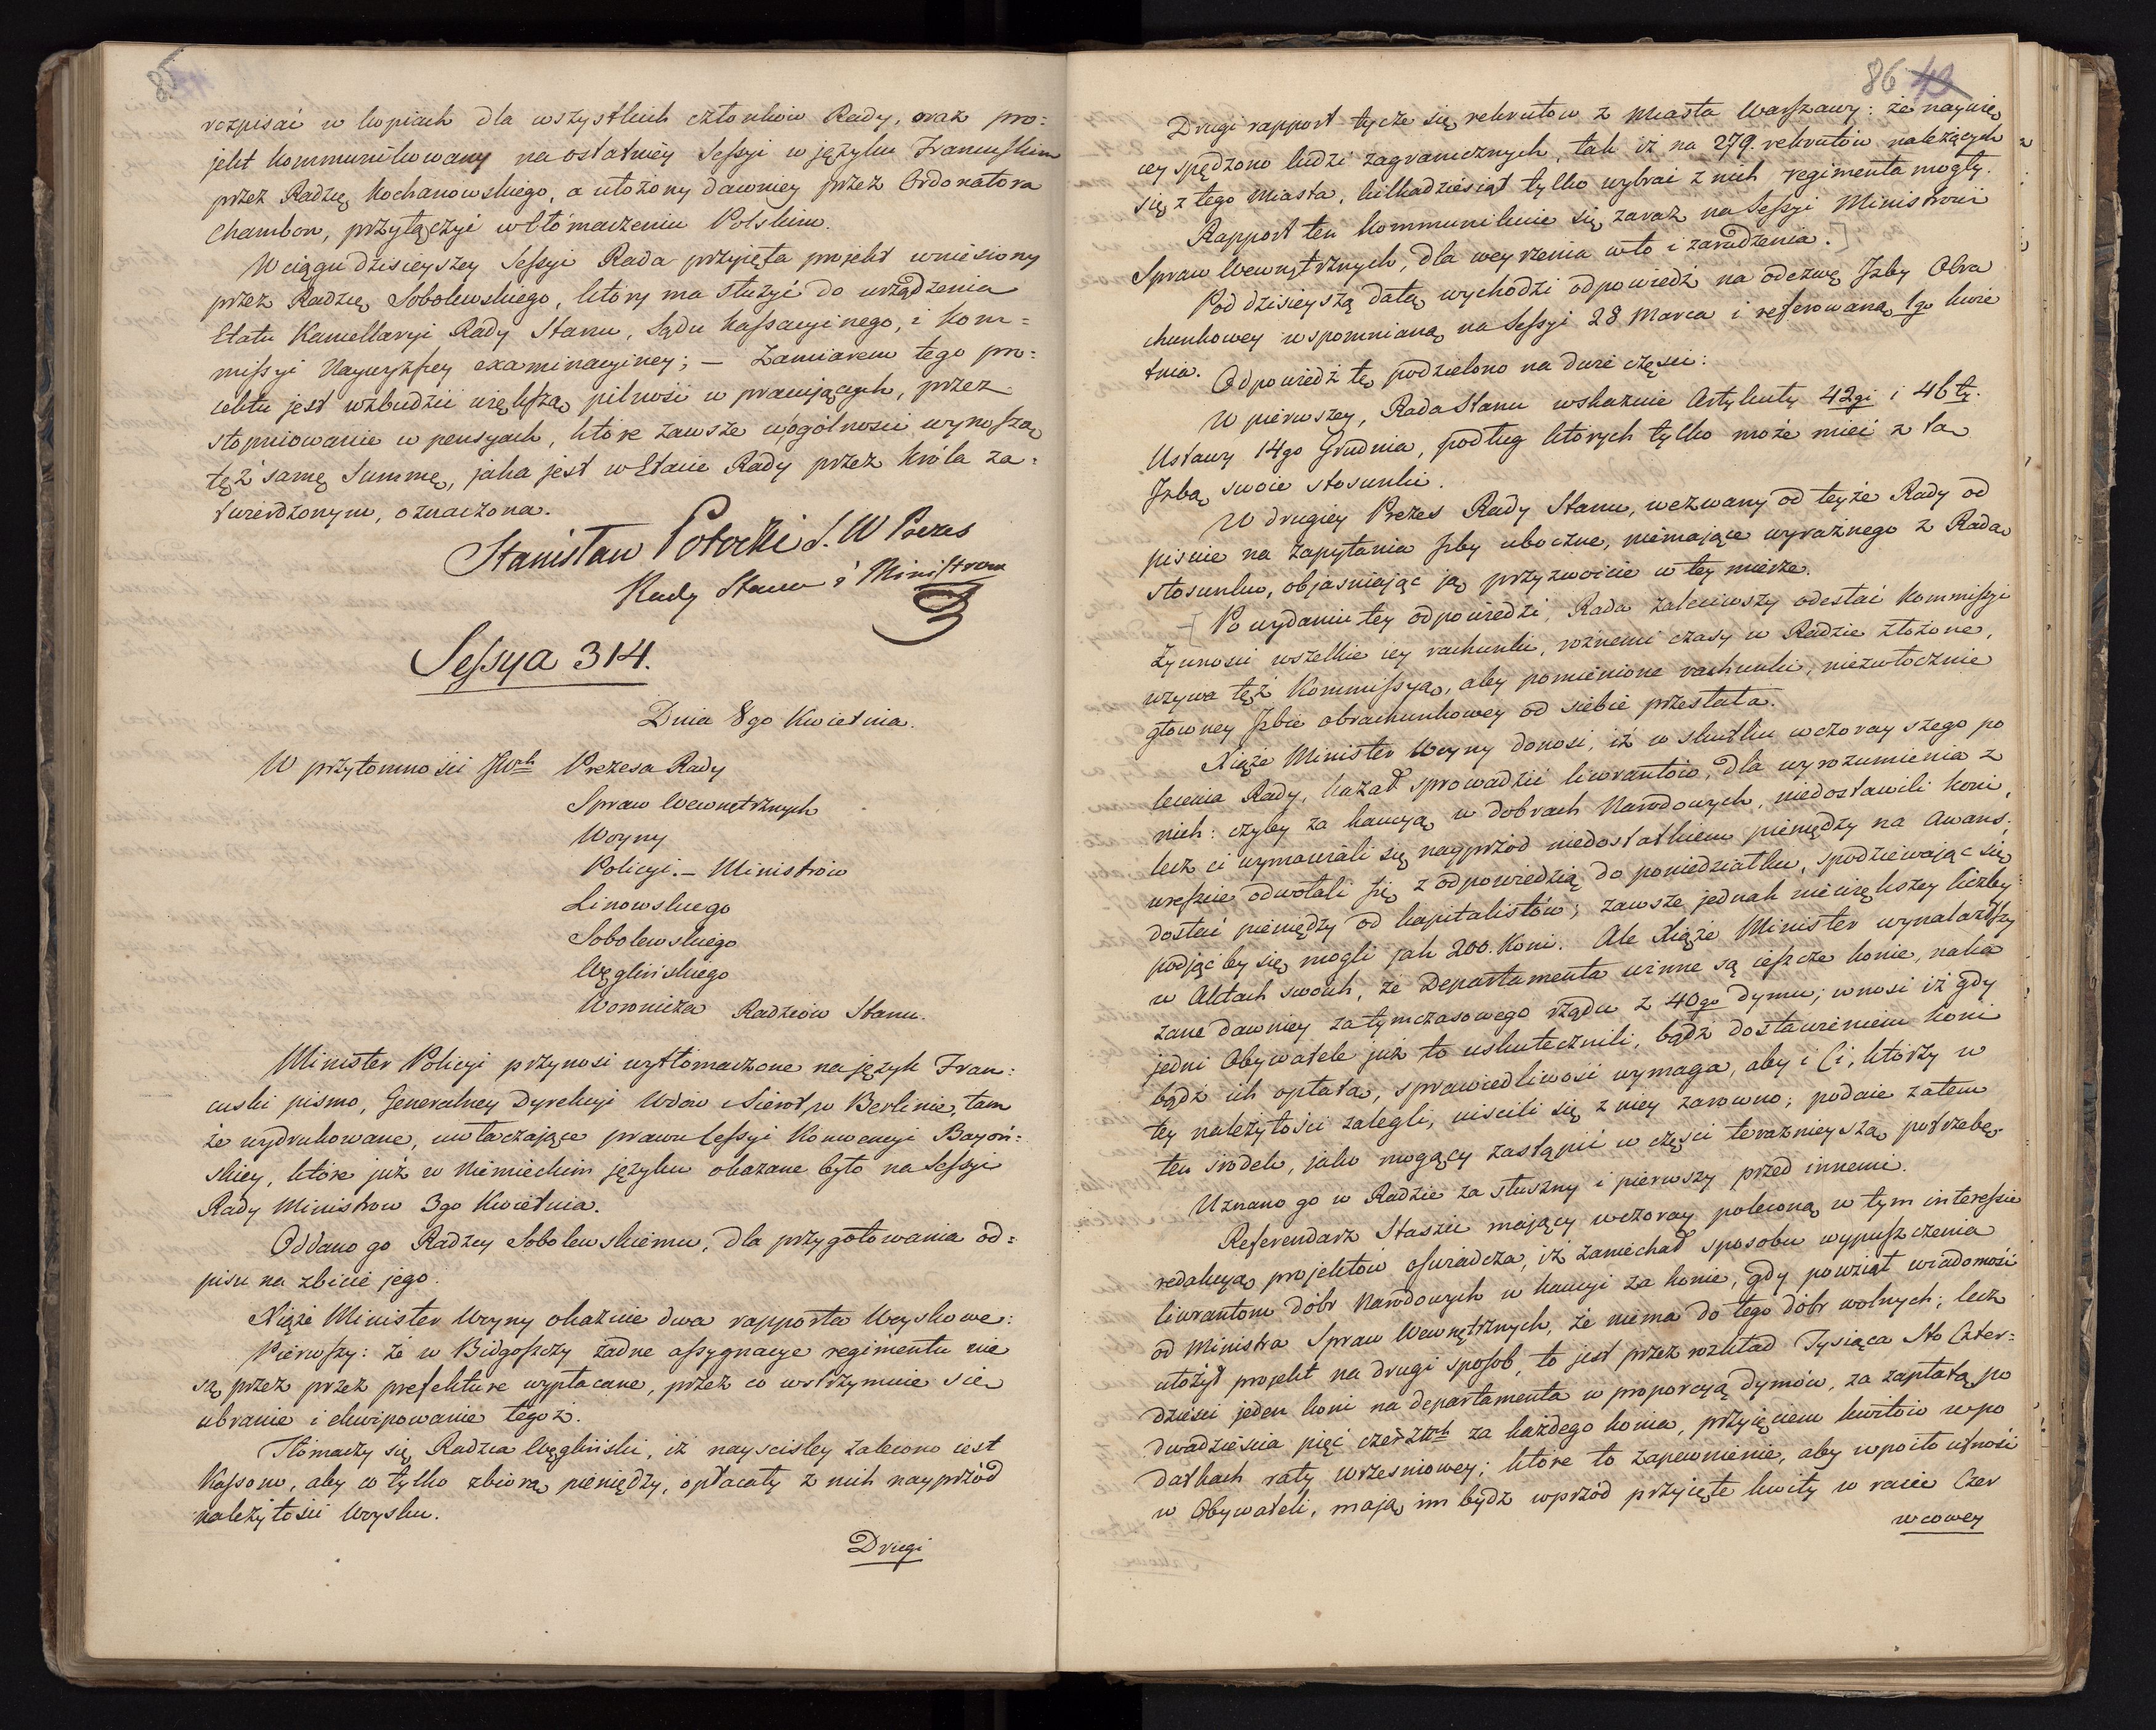 85
rozpisać w kopiach dla wszystkich członków Rady, oraz pro:
jekt kommunikowany na ostatniéy Sessyi w języku Francuskim
przez Radzcę Kochanowskiego, a ułożony dawniey przez Ordonatora
Chambon, przyłączyć w tłómaczeniu Polskim.
W ciągu dzisieyszey Sessyi Rada przyięła projekt wniesiony
przez Radzcę Sobolewskiego, który ma służyć do urządzenia
Etatu Kancellaryi Rady Stanu, Sądu Kassacyinego, i Kom=
missyi Naywyższey examinacyiney; — Zamiarem tego pro:
jektu jest wzbudzić większą pilność w pracujących, przez
stopniowanie w pensyach, które zawsze w ogólności wynoszą
tęż samę Summę, jaka jest w Etacie Rady przez Króla za=
twierdzonym, oznaczona.
Stanisław Potocki S. W Prezes
Rady Stanu i Ministrow
Sessya 314.
Dnia 8go Kwietnia.
W przytomności JWch Prezesa Rady
Spraw Wewnętrznych
Woyny
Policyi. — Ministrów
Linowskiego
Sobolewskiego
Węglińskiego
Woronicza Radzców Stanu.
Minister Policyi przynosi wytłomaczone na język Fran:
cuski pismo, Generalney Dyrekcyi Wdow i Sierot w Berlinie, tam
że wydrukowane, uwłaczające prawu Cessyi Konwencyi Bayoń:
skiey, które już w Niemieckim języku okazane było na Sessyi
Rady Ministrow 3go Kwietnia.
Oddano go Radzcy Sobolewskiemu, dla przygotowania od=
pisu na zbicie jego.
Xiąże Minister Woyny okazuie dwa rapporta Woyskowe:
Pierwszy: że w Bidgoszczy żadne assygnacye regimentu nie
są przez przez prefekture wypłacane, przez co wstrzymuie sie
ubranie i ekwipowanie tegoż.
Tłómaczy się Radzca Węgliński, iż nayscisley zalecono iest
Kassom, aby co tylko zbiorą pieniędzy, opłacały z nich nayprzód
należytości Woysku.
Drugi
86 43
Drugi rapport tycze się rekrutów z Miasta Warszawy: że naywię
cey spędzono ludzi zagranicznych, tak iż na 279. rekrutów należących
się z tego Miasta, kilkadziesiąt tylko wybrać z nich regimenta mogły.
Rapport ten kommunikuie się zaraz na Sessyi Ministrowi
Spraw Wewnętrznych, dla weyrzenia w to i zaradzenia.
Pod dzisieyszą datą wychodzi odpowiedź na odezwę Izby Obra
chunkowey wspomnianą na Sessyi 28 Marca i referowaną 1go kwie
tnia. Odpowiedź tę podzielono na dwie części:
W pierwszey, Rada Stanu wskazuie Artykuły 42gi i 46ty.
Ustawy 14go Grudnia, podług których tylko może mieć z tą
Izbą swoie stosunki.
W drugiey Prezes Rady Stanu, wezwany od teyże Rady od
pisuie na zapytania Izby uboczne, niemające wyraźnego z Radą
stosunku, objaśniając ją przyzwoicie w tey mierze.
Po wydaniu tey odpowiedzi, Rada zaleciwszy odesłać Kommissyi
Żywności wszelkie iey rachunki, rożnemi czasy w Radzie złożone,
wzywa też Kommissyą, aby pomienione rachunki, niezwłocznie
głowney Izbie obrachunkowey od siebie przesłała.
Xiąże Minister Woyny donosi, iż w skutku wczorayszego po
lecenia Rady, kazał sprowadzić liwrantów, dla wyrozumienia z
nich: czyby za kaucyą w dobrach Narodowych, niedostawili koni,
lecz ci wymawiali się nayprzód niedostatkiem pieniędzy na awans,
wreszcie odwołali się z odpowiedzią do poniedziałku, spodziewając się
dostać pieniędzy od kapitalistów; zawsze jednak niewiększey liczby
podjąć by się mogli jak 200. Koni. Ale Xiąże Minister wynalazłszy
w Aktach swoich, że Departamenta winne są ieszcze konie, naka
zane dawniey za tymczasowego rządu z 40go dymu; wnosi iż gdy
jedni Obywatele już to uskutecznili, bądź dostawieniem koni
bądź ich opłatą, sprawiedliwość wymaga, aby i Ci, którzy w
tey należytości zalegli, uiscili się z niey zarowno; podaie zatem
ten srodek, jako mogący zastąpić w części teraznieyszą potrzebę.
Uznano go w Radzie za słuszny i pierwszy przed innemi.
Referendarz Staszic mający wczoray poleconą w tym interessie
redakcyą projektów oświadcza, iż zaniechał sposobu wypuszczenia
liwrantom dóbr Narodowych w kaucyi za konie, gdy powziął wiadomość
od Ministra Spraw Wewnętrznych, że niema do tego dóbr wolnych; lecz
ułożył projekt na drugi sposob, to jest przez rozkład Tysiąca Sto Czter=
dzieści jeden koni na departamenta w proporcyą dymów, za zapłatą po
dwadzieścia pięć czer: Złtch za każdego konia, przyięciem kwitów w po
datkach raty wrześniowey; które to zapewnienie, aby wpoiło ufność
w Obywateli, mają im bydź wprzód przyięte kwity w racie Czer
wcowey